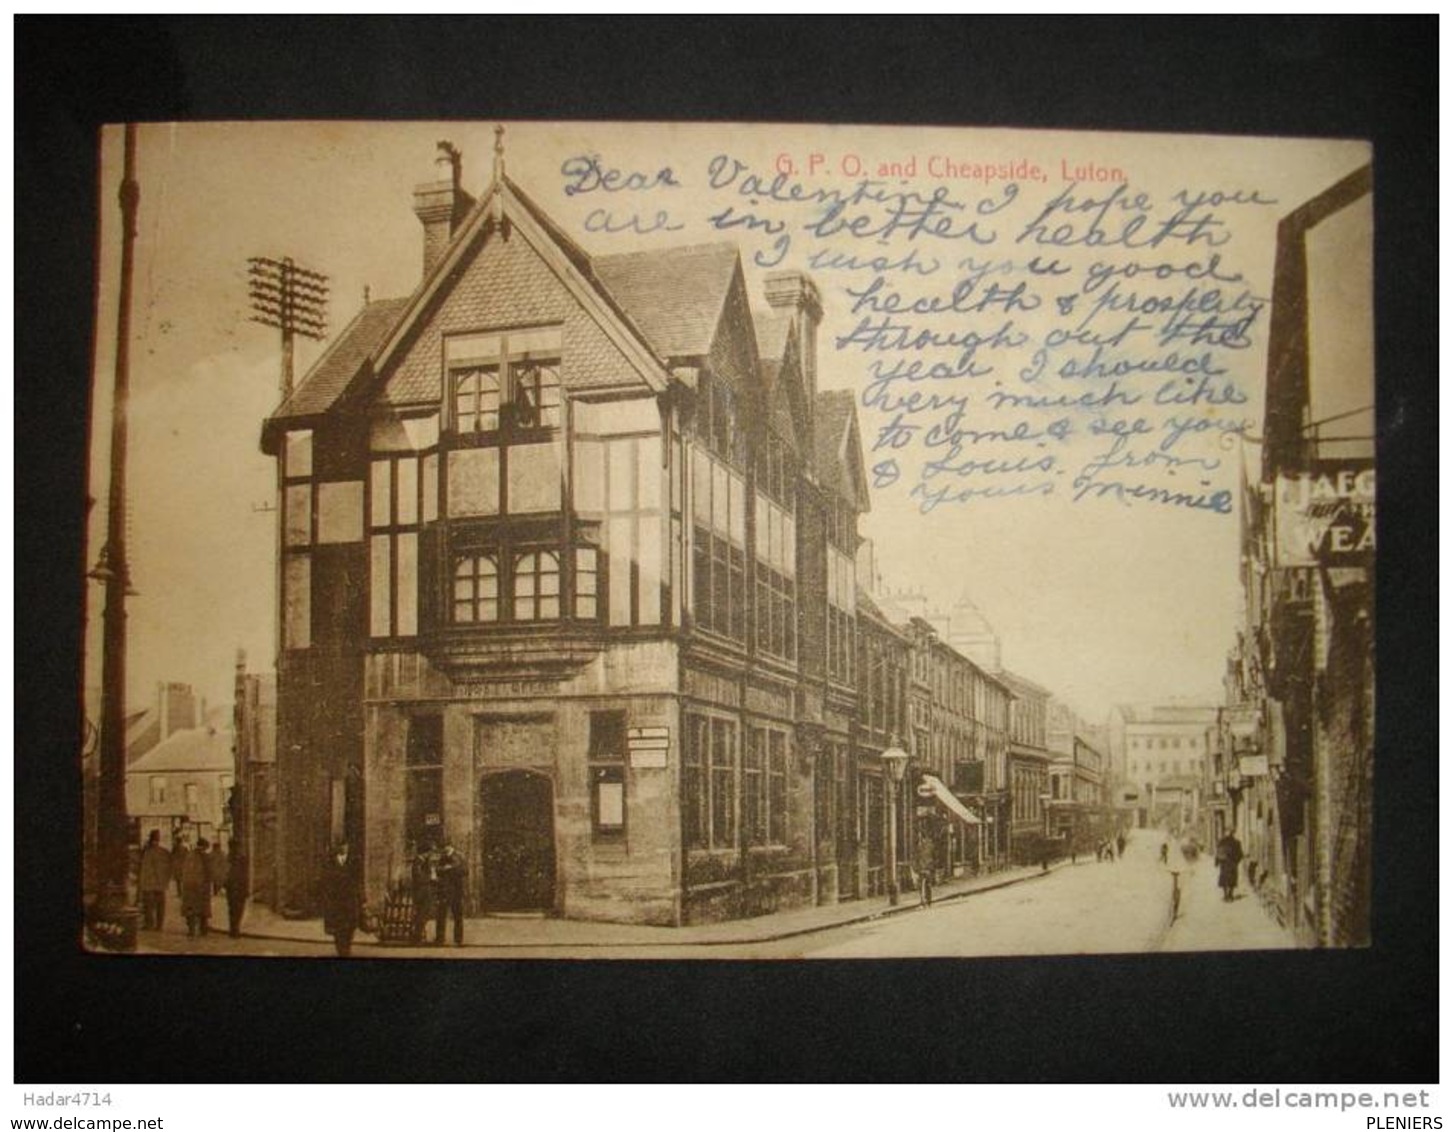 G. P. O. and Cheapside, Luton.
Dear Valentine I hope you
are in better health
I wish you good
health & prosperity
through out the
year. I should
very much like
to come & see you
& Louis. from
yours Minnie
POST OFFICE
JAEG
WEA
Hadar4714
www.delcampe.net
www.delcampe.net
PLENIERS